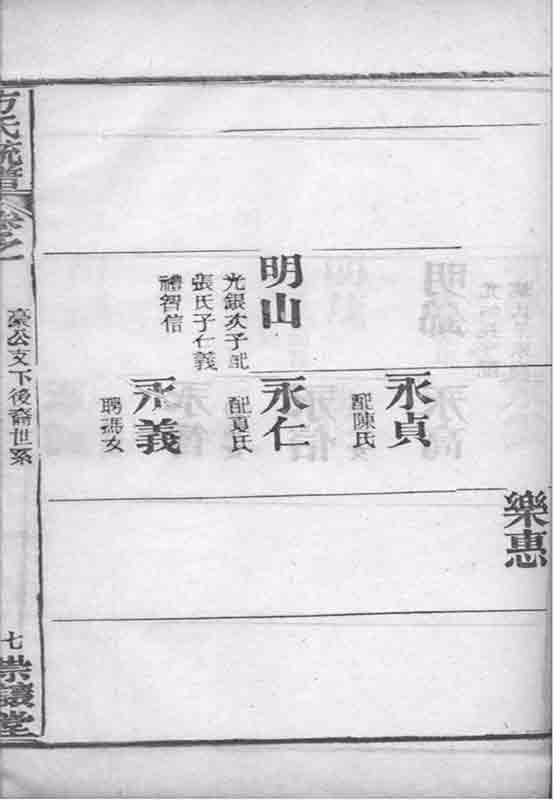 樂惠
永貞
配陳氏
明山
光銀次子配
張氏子仁義
禮智信
永仁
配夏氏
永義
聘馮女
方氏統譜
卷之一
豪公支下後裔世系
七
崇讓堂